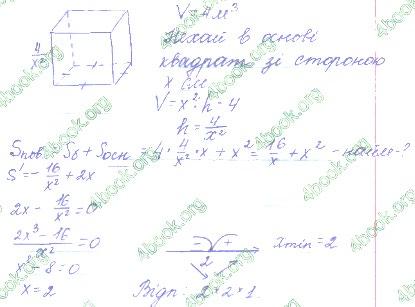 V = 4 м³
Нехай в основі
квадрат зі стороною
x см
V = x² · h = 4
h = 4/x²
4/x²
Sпов = Sб + Sосн = 4 · 4/x² · x + x² = 16/x + x² - найме-?
S' = -16/x² + 2x
2x - 16/x² = 0
(2x³ - 16)/x² = 0
x³ - 8 = 0
x = 2
- +
2
xmin = 2
Відп: 2×2×1
4book.org